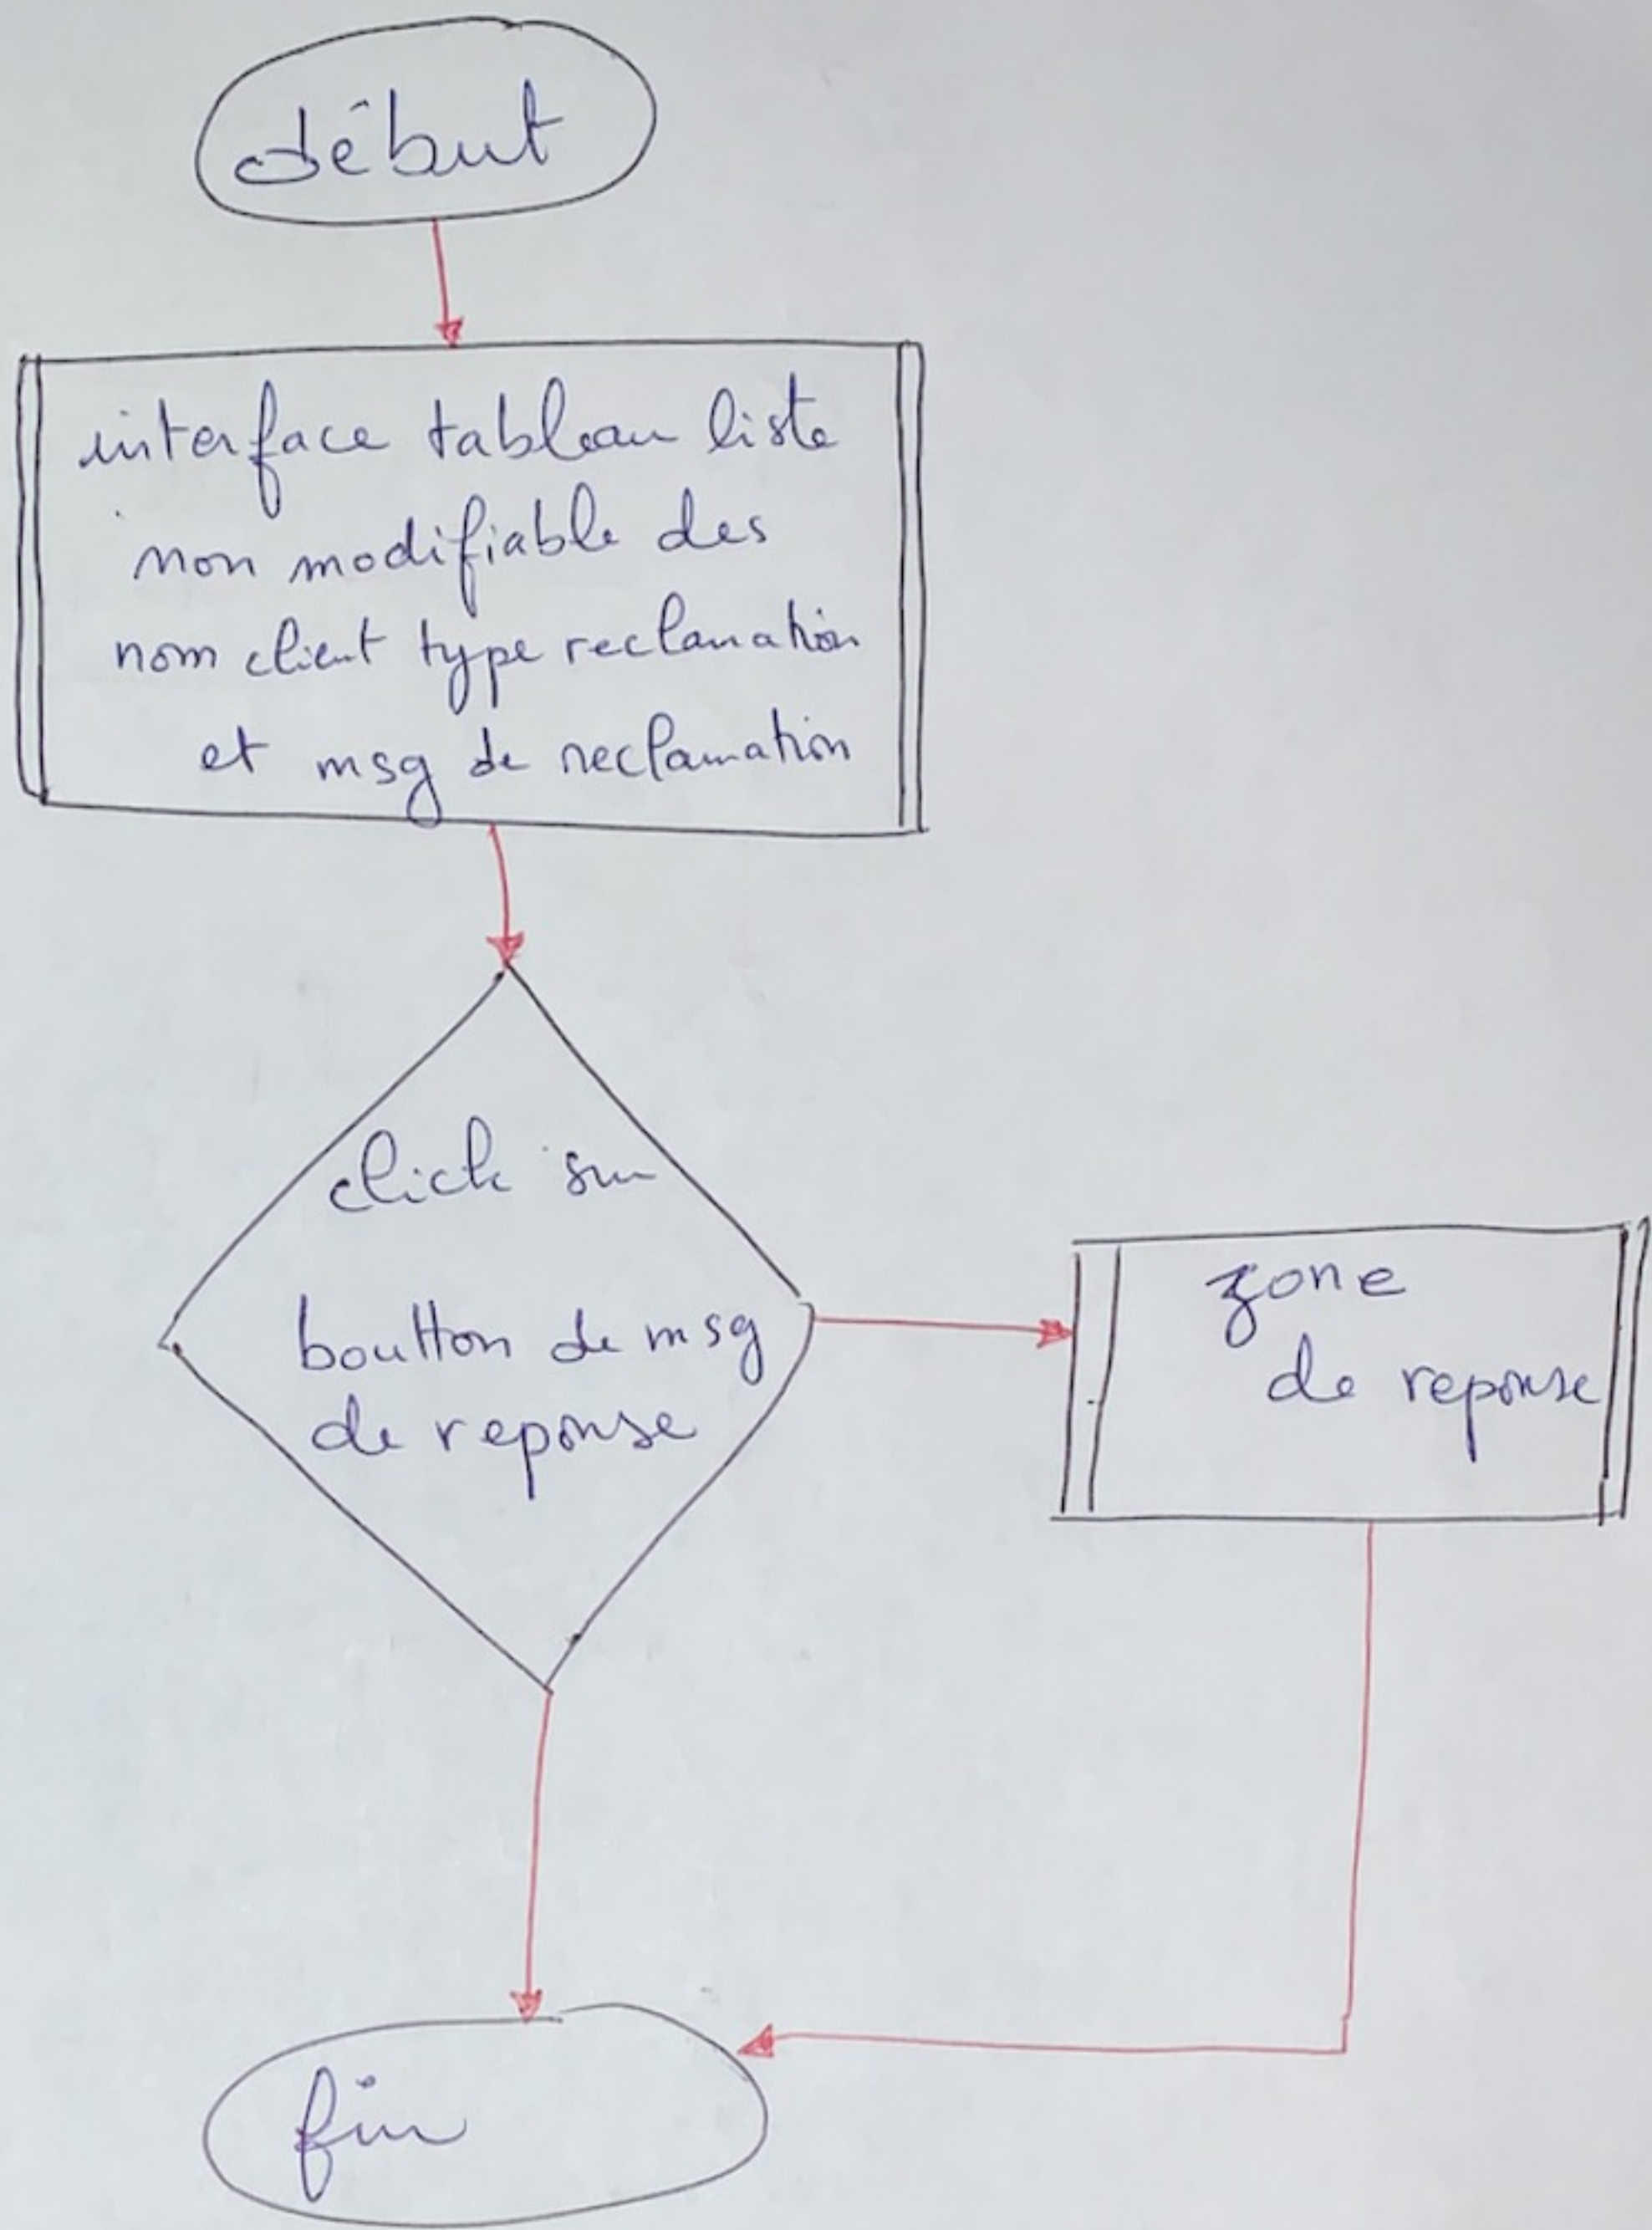 début
interface tableau liste
non modifiable des
nom client type reclamation
et msg de reclamation
click sur
boutton de msg
de reponse
zone
de reponse
fin